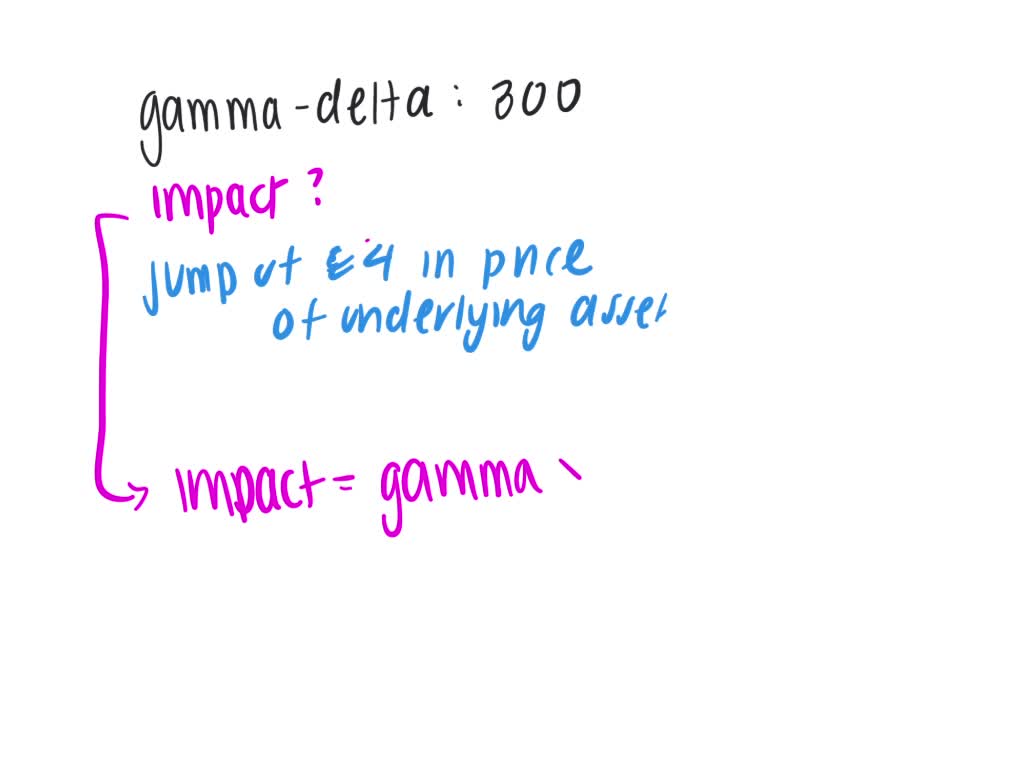 gamma-delta: 300
impact?
jump of £4 in price
of underlying asset
impact = gamma